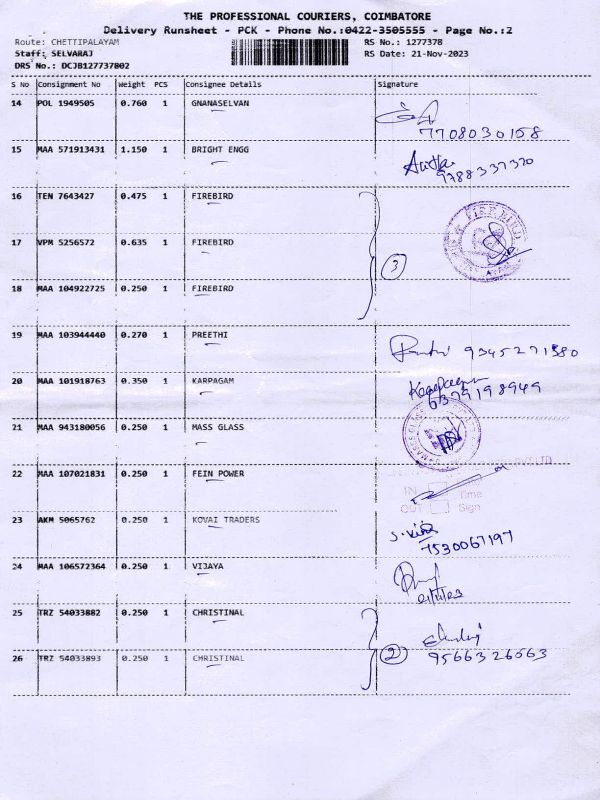 THE PROFESSIONAL COURIERS, COIMBATORE
Delivery Runsheet - PCK - Phone No.:0422-3505555 - Page No.:2
Route: CHETTIPALAYAM RS No.: 1277378
Staff: SELVARAJ RS Date: 21-Nov-2023
DRS No.: DCJB127737802
S No Consignment No Weight PCS Consignee Details Signature
14 POL 1949505 0.760 1 GNANASELVAN
7708030158
15 MAA 571913431 1.150 1 BRIGHT ENGG
9788337320
16 TEN 7643427 0.475 1 FIREBIRD
FIREBIRD
17 VPM 5256572 0.635 1 FIREBIRD
3
18 MAA 104922725 0.250 1 FIREBIRD
19 MAA 103944440 0.270 1 PREETHI
9345271580
20 MAA 101918763 0.350 1 KARPAGAM
6379198949
21 MAA 943180056 0.250 1 MASS GLASS
22 MAA 107021831 0.250 1 FEIN POWER
PVT LTD
IN Time
OUT Sign
23 AKM 5065762 0.250 1 KOVAI TRADERS
7530067197
24 MAA 106572364 0.250 1 VIJAYA
25 TRZ 54033882 0.250 1 CHRISTINAL
26 TRZ 54033893 0.250 1 CHRISTINAL
2 9566326563